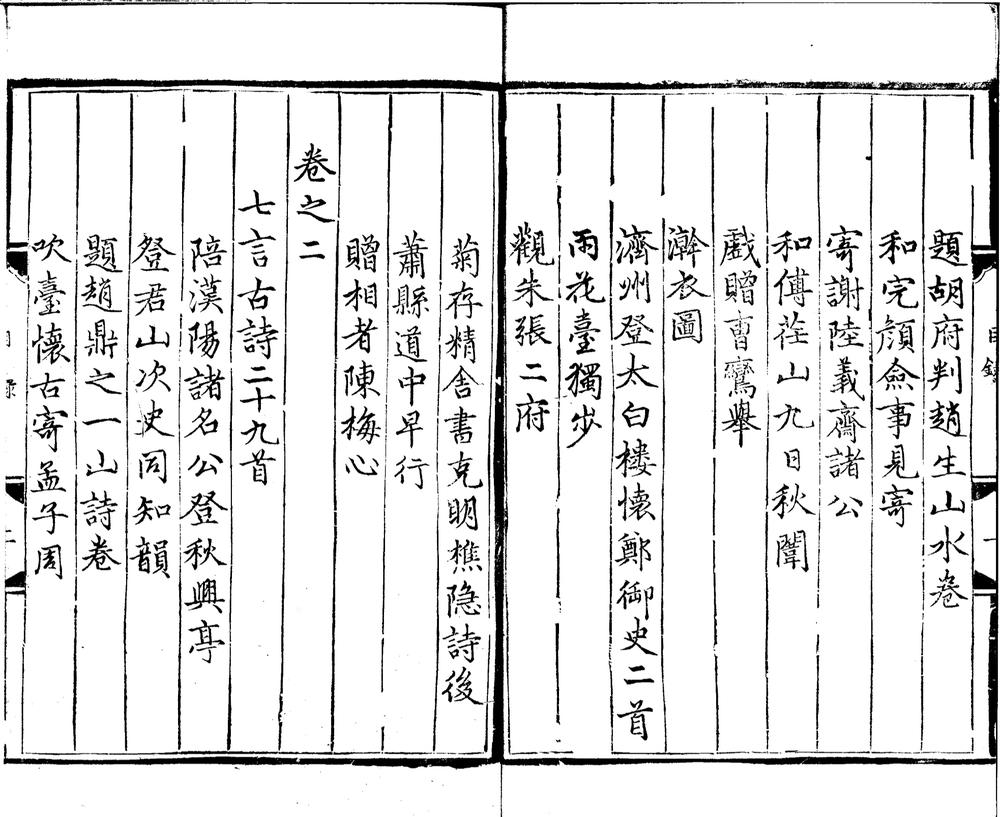 題胡府判趙生山水卷
和完顔僉事見寄
寄謝陸義齋諸公
和傅莊山九日秋闈
戲贈曹鸞舉
澣衣圖
濟州登太白樓懷鄭御史二首
雨花臺獨步
觀朱張二府
菊存精舍書克明樵隐詩後
蕭縣道中早行
贈相者陳梅心
卷之二
七言古詩二十九首
陪漢陽諸名公登秋興亭
登君山次史同知韻
題趙鼎之一山詩卷
吹臺懷古寄孟子周